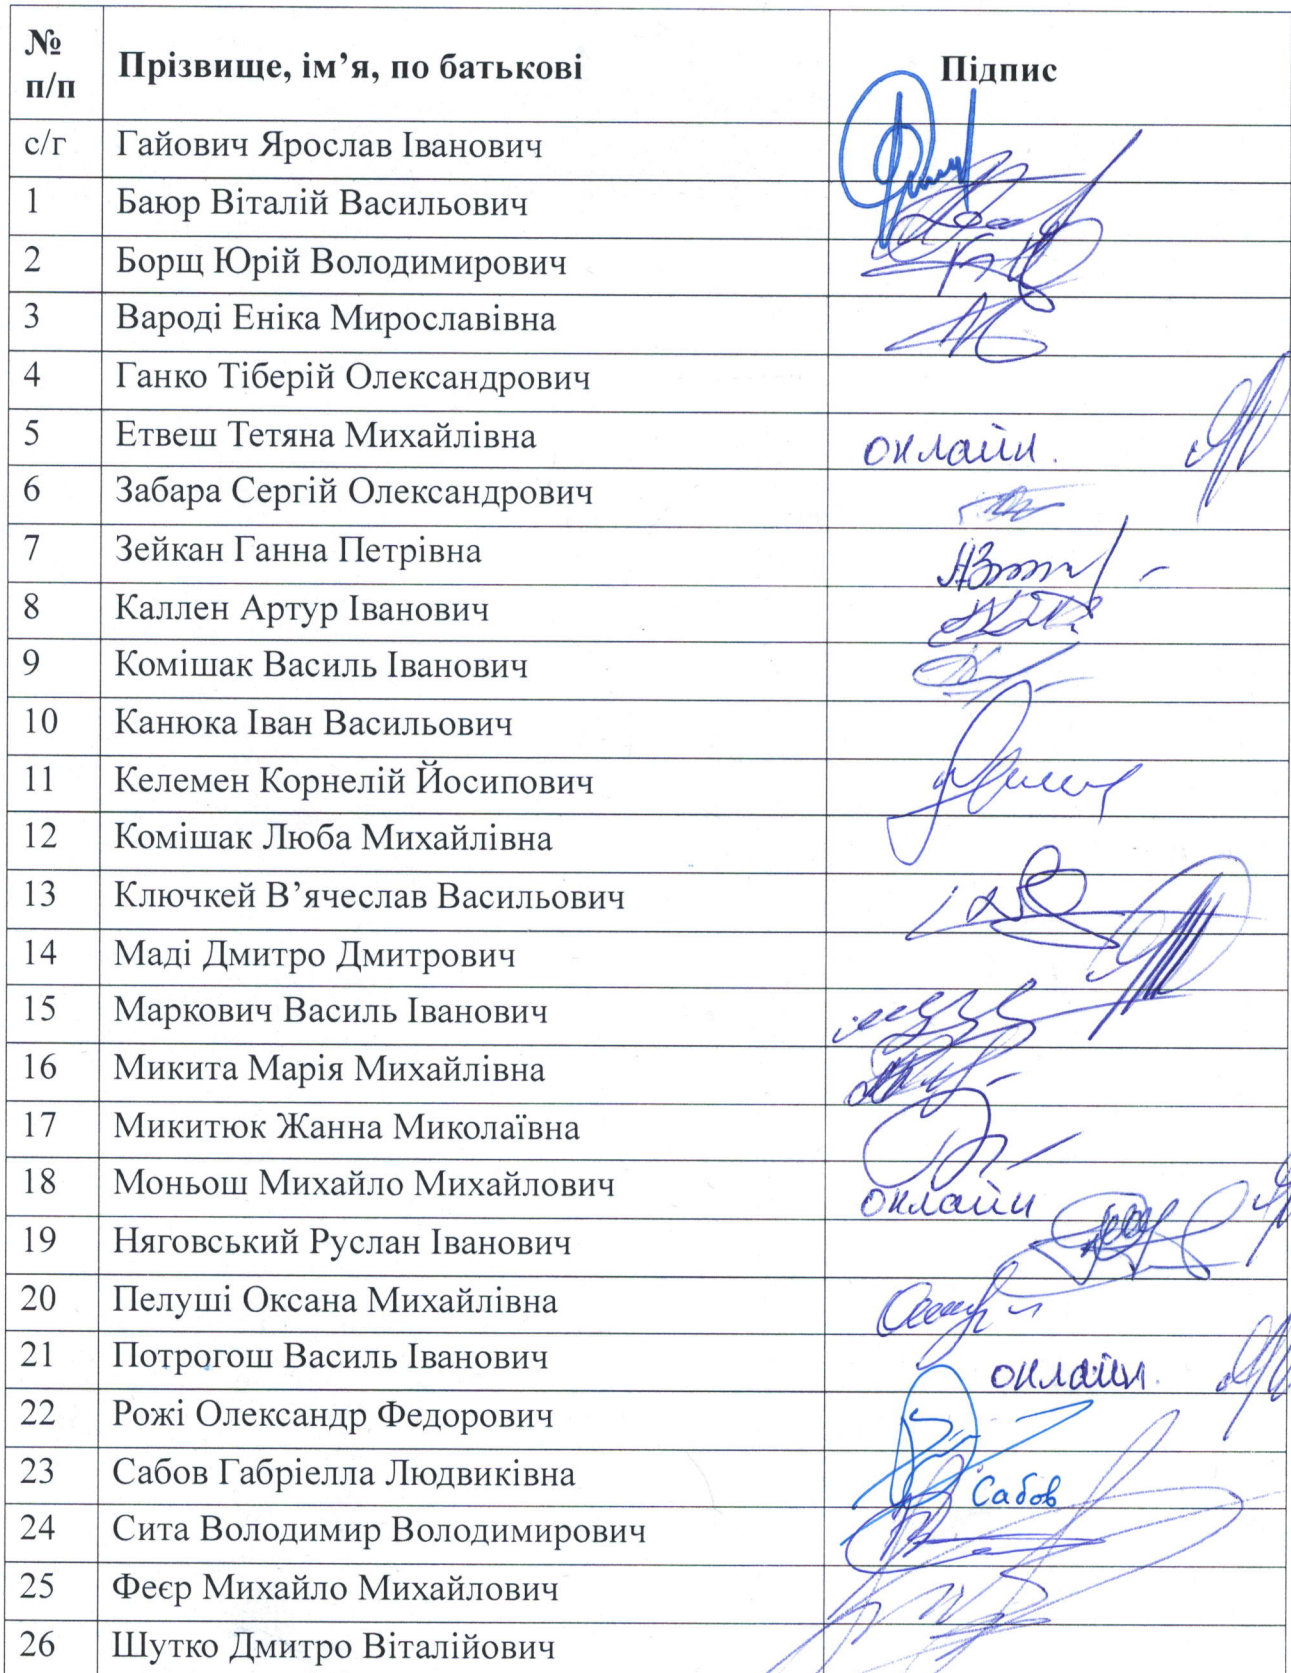 № п/п Прізвище, ім’я, по батькові Підпис
с/г Гайович Ярослав Іванович
1 Баюр Віталій Васильович
2 Борщ Юрій Володимирович
3 Вароді Еніка Мирославівна
4 Ганко Тіберій Олександрович
5 Етвеш Тетяна Михайлівна онлайн.
6 Забара Сергій Олександрович
7 Зейкан Ганна Петрівна
8 Каллен Артур Іванович
9 Комішак Василь Іванович
10 Канюка Іван Васильович
11 Келемен Корнелій Йосипович
12 Комішак Люба Михайлівна
13 Ключкей В’ячеслав Васильович
14 Маді Дмитро Дмитрович
15 Маркович Василь Іванович
16 Микита Марія Михайлівна
17 Микитюк Жанна Миколаївна
18 Моньош Михайло Михайлович онлайн
19 Няговський Руслан Іванович
20 Пелуші Оксана Михайлівна
21 Потрогош Василь Іванович онлайн.
22 Рожі Олександр Федорович
23 Сабов Габріелла Людвиківна Сабов
24 Сита Володимир Володимирович
25 Феєр Михайло Михайлович
26 Шутко Дмитро Віталійович